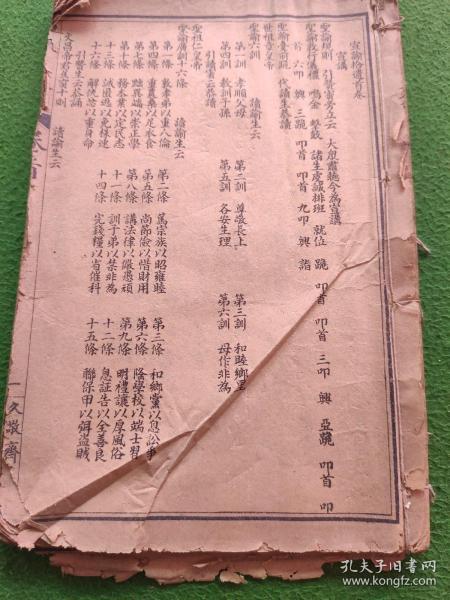 宣諭拾遺首卷
宣講
聖諭規則 引贊當旁立云 大眾肅聽今為宣講
聖諭敬行嚴禮 鳴金 擊鼓 諸生虔誠排班 就位 跪 叩首 叩首 三叩 興 亞跪 叩首 叩
首 六叩 興 三跪 叩首 叩首 九叩 興 詣
聖諭臺前跪 代讀生恭讀
世祖章皇帝
聖諭六訓 讀諭生云
第一訓 孝順父母 第二訓 尊敬長上 第三訓 和睦鄉里
第四訓 教訓子孫 第五訓 各安生理 第六訓 毋作非為
引讀生云恭讀
聖祖仁皇帝
聖諭廣訓十六條 讀諭生云
第一條 敦孝弟以重人倫 第二條 篤宗族以昭雍睦 第三條 和鄉黨以息訟爭
第四條 重農桑以足衣食 第五條 尚節儉以惜財用 第六條 隆學校以端士習
第七條 黜異端以崇正學 第八條 講法律以儆愚頑 第九條 明禮讓以厚風俗
第十條 務本業以定民志 十一條 訓子弟以禁非為 十二條 息誣告以全善良
十三條 誡匿逃以免株連 十四條 完錢糧以省催科 十五條 聯保甲以弭盜賊
十六條 解仇忿以重身命
引贊生云恭誦
文昌帝君 十則 讀諭生云
一 久敬齊
孔夫子旧书网
www.kongfz.com